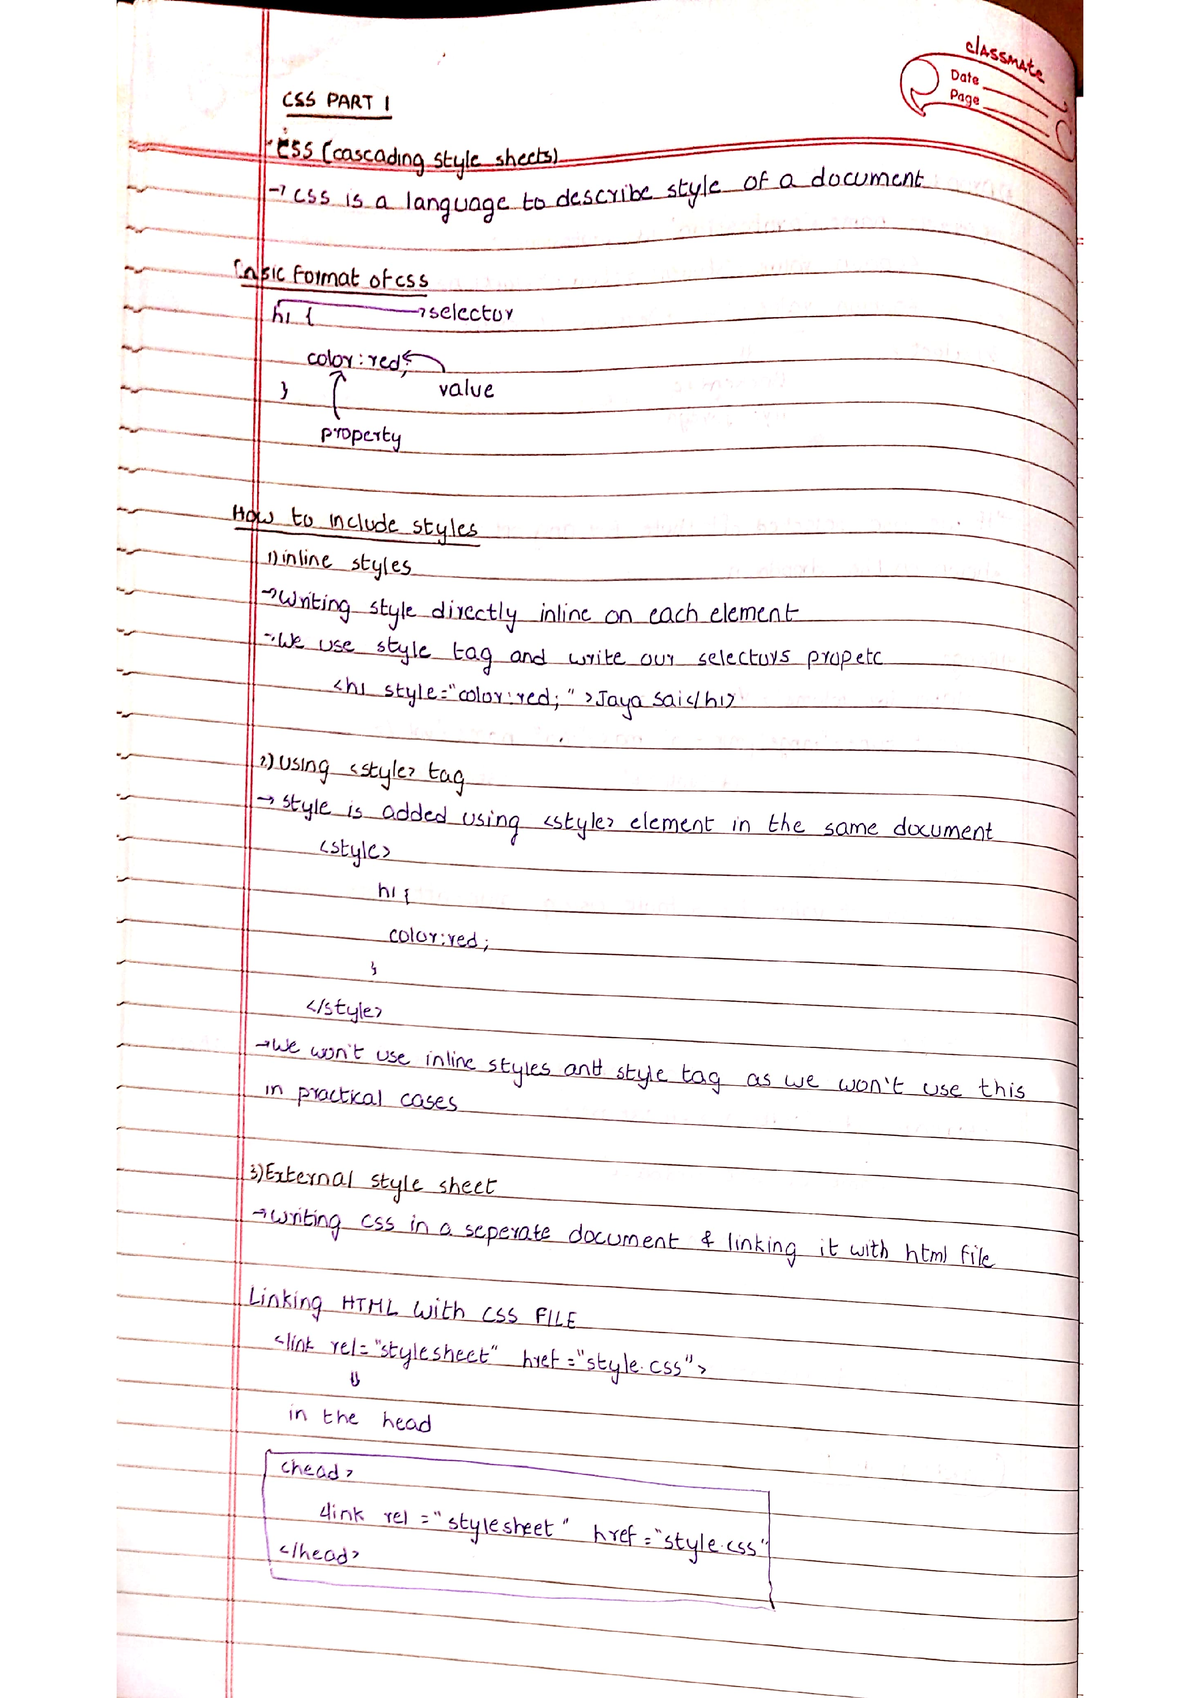 classmate
Date
Page
CSS PART 1
CSS (cascading style sheets)
→ css is a language to describe style of a document
Basic Format of css
h1 { → selector
color:red;
} value
property
How to include styles
1) inline styles
→ Writing style directly inline on each element
→ We use style tag and write our selectors propetc
<h1 style="color:red;" >Jaya Sai</h1>
2) Using <style> tag
→ style is added using <style> element in the same document
<style>
h1 {
color:red;
}
</style>
→ We won't use inline styles and style tag as we won't use this
in practical cases
3) External style sheet
→ writing css in a seperate document & linking it with html file
Linking HTML with CSS FILE
<link rel="stylesheet" href="style.css">
⇓
in the head
<head>
<link rel="stylesheet" href="style.css"
</head>